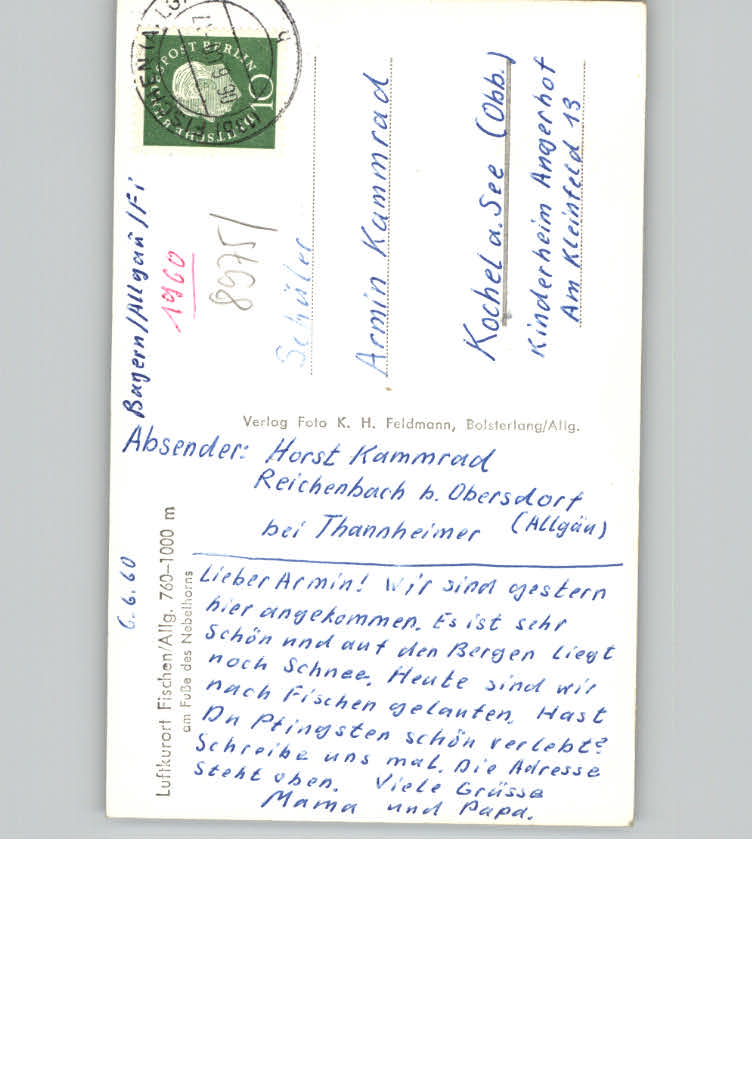 DEUTSCHE BUNDESPOST BERLIN
10
FISCHEN (ALLG
Bayern/Allgäu/Fi
1960
89751
Schüler
Armin Kammrad
Kochel a. See (Obb.)
Kinderheim Angerhof
Am Kleinfeld 13
Verlag Foto K. H. Feldmann, Bolsterlang/Allg.
Absender: Horst Kammrad
Reichenbach b. Obersdorf
(Allgäu)
bei Thannheimer
6.6.60
Luftkurort Fischen/Allg. 760–1000 m
am Fuße des Nebelhorns
Lieber Armin! Wir sind gestern
hier angekommen. Es ist sehr
schön und auf den Bergen liegt
noch Schnee. Heute sind wir
nach Fischen gelaufen. Hast
Du Pfingsten schön verlebt?
Schreibe uns mal. Die Adresse
steht oben. Viele Grüsse
Mama und Papa.